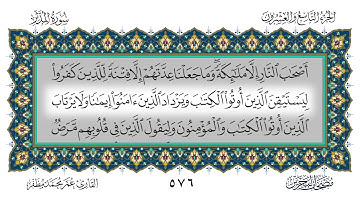 سورة المدثر
الجزء التاسع والعشرون
أَصْحَٰبَ ٱلنَّارِ إِلَّا مَلَٰٓئِكَةً ۙ وَمَا جَعَلْنَا عِدَّتَهُمْ إِلَّا فِتْنَةً لِّلَّذِينَ كَفَرُوا۟
لِيَسْتَيْقِنَ ٱلَّذِينَ أُوتُوا۟ ٱلْكِتَٰبَ وَيَزْدَادَ ٱلَّذِينَ ءَامَنُوٓا۟ إِيمَٰنًا وَلَا يَرْتَابَ
ٱلَّذِينَ أُوتُوا۟ ٱلْكِتَٰبَ وَٱلْمُؤْمِنُونَ وَلِيَقُولَ ٱلَّذِينَ فِى قُلُوبِهِم مَّرَضٌ
القارئ عمر محمد مظفر
٥٧٦